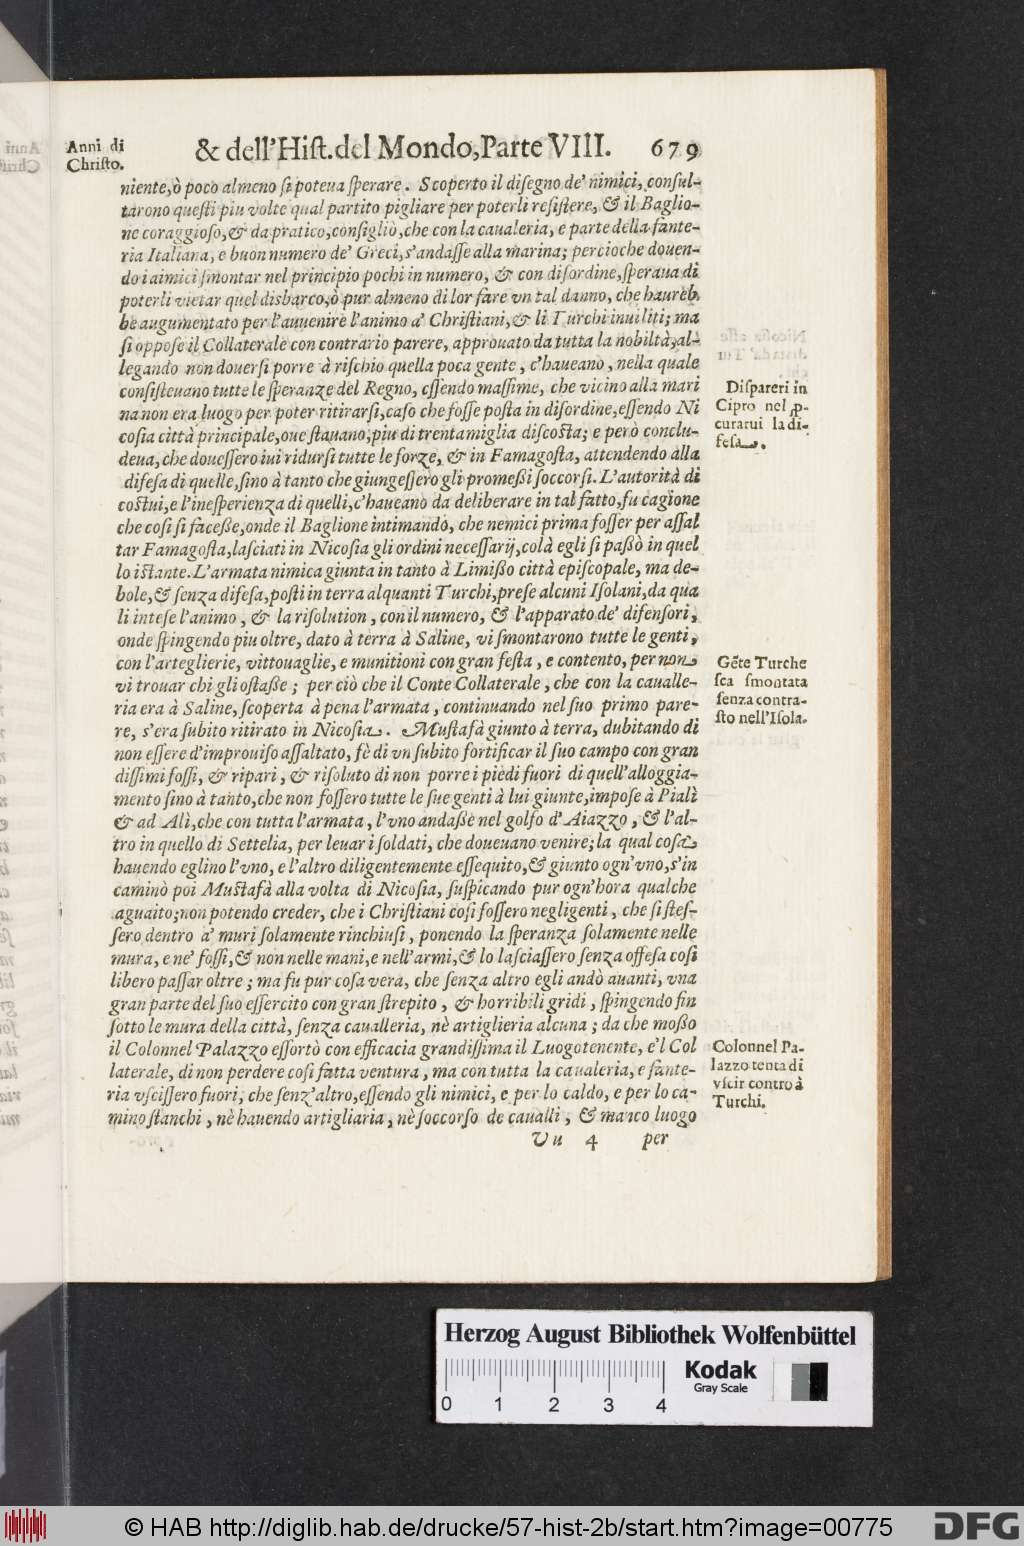 Anni di
Christo.
& dell'Hiſt. del Mondo, Parte VIII. 679
niente, ò poco almeno ſi poteua ſperare. Scoperto il diſegno de' nimici, conſul-
tarono queſti piu volte qual partito pigliare per poterli reſiſtere, & il Baglio-
ne coraggioſo, & da pratico, conſigliò, che con la caualeria, e parte della fante-
ria Italiana, e buon numero de' Greci, s'andaſſe alla marina; percioche douen-
do i aimici ſmontar nel principio pochi in numero, & con diſordine, ſperaua di
poterli vietar quel disbarco, ò pur almeno di lor fare vn tal danno, che haureb
be augumentato per l'auuenire l'animo a' Chriſtiani, & li Turchi inuiliti; ma
ſi oppoſe il Collaterale con contrario parere, approuato da tutta la nobiltà, al-
legando non douerſi porre à riſchio quella poca gente, c'haueano, nella quale
conſiſteuano tutte le ſperanze del Regno, eſſendo maſſime, che vicino alla mari
na non era luogo per poter ritirarſi, caſo che foſſe poſta in diſordine, eſſendo Ni
coſia città principale, oue ſtauano, piu di trenta miglia diſcoſta; e però conclu-
deua, che doueſſero iui ridurſi tutte le forze, & in Famagoſta, attendendo alla
difeſa di quelle, ſino à tanto che giungeſſero gli promeßi ſoccorſi. L'autorità di
coſtui, e l'ineſperienza di quelli, c'haueano da deliberare in tal fatto, fu cagione
che coſi ſi faceße, onde il Baglione intimandò, che nemici prima foſſer per aſſal
tar Famagoſta, laſciati in Nicoſia gli ordini neceſſarij, colà egli ſi paßò in quel
lo iſtante. L'armata nimica giunta in tanto à Limißo città epiſcopale, ma de-
bole, & ſenza difeſa, poſti in terra alquanti Turchi, preſe alcuni Iſolani, da qua
li inteſe l'animo, & la riſolution, con il numero, & l'apparato de' difenſori,
onde ſpingendo piu oltre, dato à terra à Saline, vi ſmontarono tutte le genti,
con l'arteglierie, vittouaglie, e munitioni con gran feſta, e contento, per non
vi trouar chi gli oſtaße; per ciò che il Conte Collaterale, che con la caualle-
ria era à Saline, ſcoperta à pena l'armata, continuando nel ſuo primo pare-
re, s'era ſubito ritirato in Nicoſia. Muſtafà giunto à terra, dubitando di
non eſſere d'improuiſo aſſaltato, fè di vn ſubito fortificar il ſuo campo con gran
diſſimi foſſi, & ripari, & riſoluto di non porre i piedi fuori di quell'alloggia-
mento ſino à tanto, che non foſſero tutte le ſue genti à lui giunte, impoſe à Pialì
& ad Alì, che con tutta l'armata, l'vno andaße nel golfo d'Aiazzo, & l'al-
tro in quello di Settelia, per leuar i ſoldati, che doueuano venire; la qual coſa
hauendo eglino l'vno, e l'altro diligentemente eſſequito, & giunto ogn'vno, s'in
caminò poi Muſtafà alla volta di Nicoſia, ſuſpicando pur ogn'hora qualche
aguaito; non potendo creder, che i Chriſtiani coſi foſſero negligenti, che ſi ſteſ-
ſero dentro a' muri ſolamente rinchiuſi, ponendo la ſperanza ſolamente nelle
mura, e ne' foſſi, & non nelle mani, e nell'armi, & lo laſciaſſero ſenza offeſa coſi
libero paſſar oltre; ma fu pur coſa vera, che ſenza altro egli andò auanti, vna
gran parte del ſuo eſſercito con gran ſtrepito, & horribili gridi, ſpingendo fin
ſotto le mura della città, ſenza caualleria, nè artiglieria alcuna; da che moßo
il Colonnel Palazzo eſſortò con efficacia grandiſſima il Luogotenente, e'l Col
laterale, di non perdere coſi fatta ventura, ma con tutta la caualeria, e fante-
ria vſciſſero fuori, che ſenz'altro, eſſendo gli nimici, e per lo caldo, e per lo ca-
mino ſtanchi, nè hauendo artigliaria, nè ſoccorſo de caualli, & manco luogo
Vu 4 per
Diſpareri in
Cipro nel ꝓ-
curarui la di-
feſa.
Gẽte Turche
ſca ſmontata
ſenza contra-
ſto nell'Iſola.
Colonnel Pa-
lazzo tenta di
vſcir contro à
Turchi.
Herzog August Bibliothek Wolfenbüttel
0 1 2 3 4
Kodak
Gray Scale
© HAB http://diglib.hab.de/drucke/57-hist-2b/start.htm?image=00775
DFG